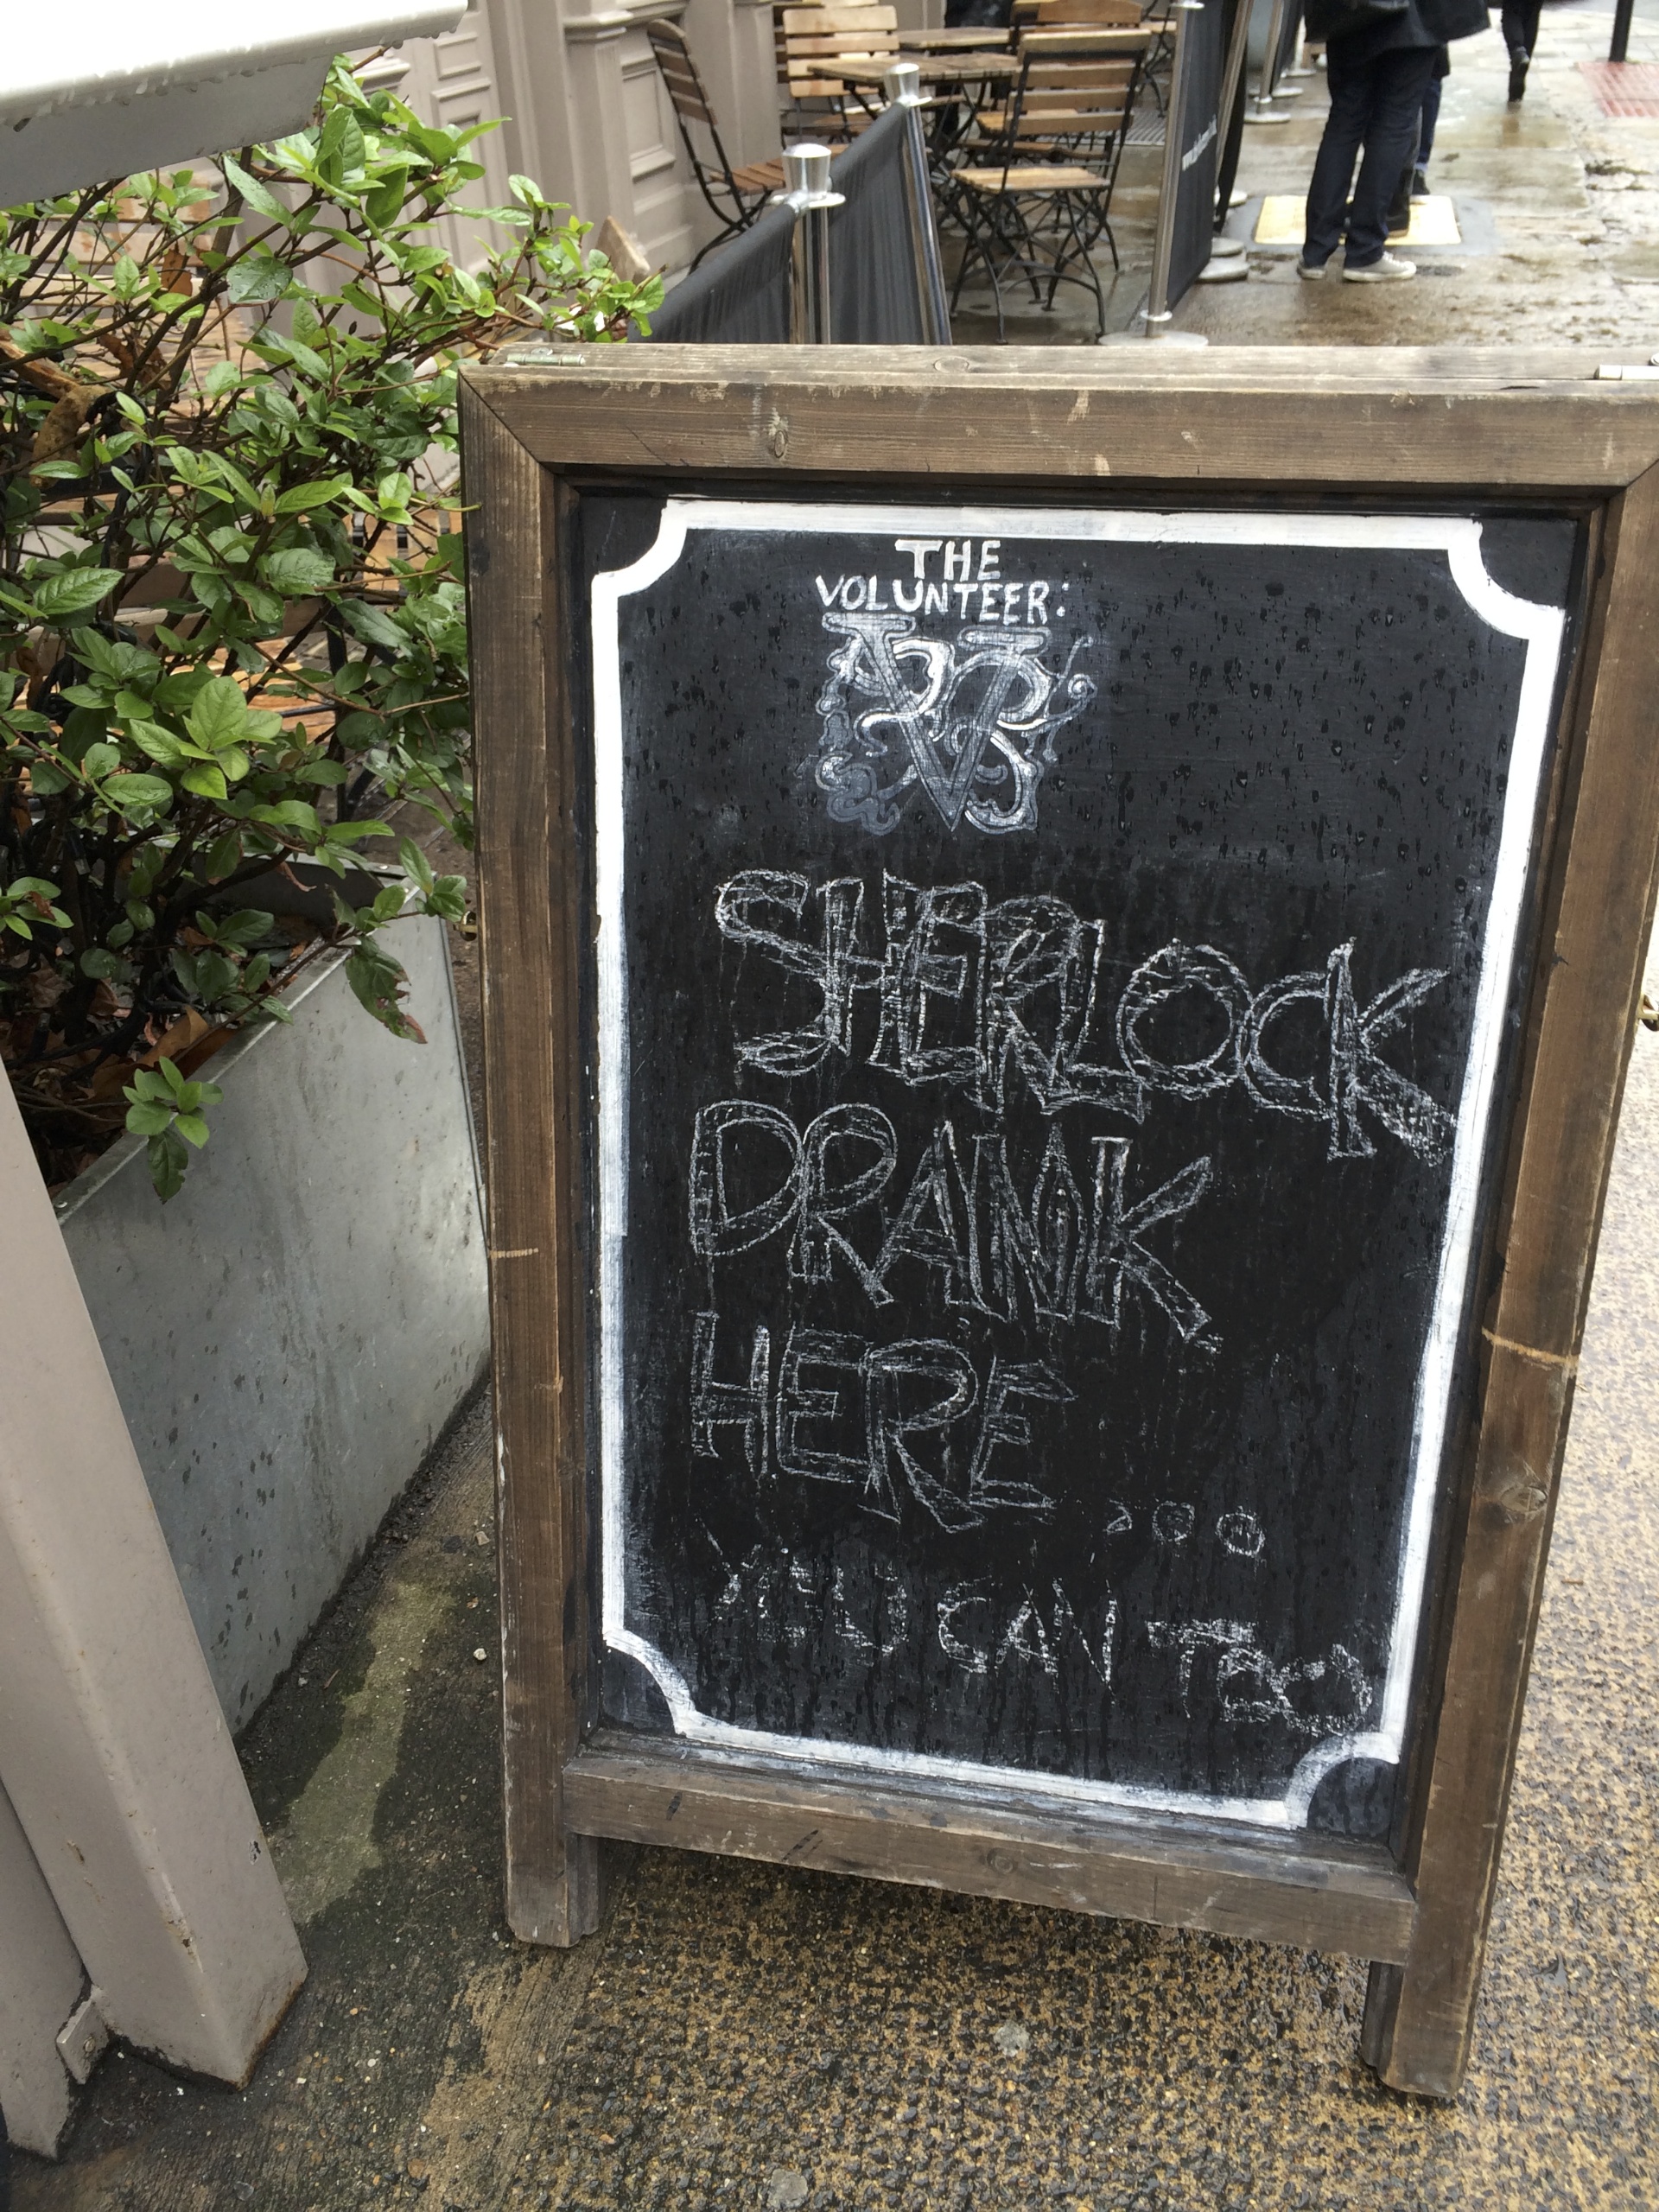 THE
VOLUNTEER:
SHERLOCK
DRANK
HERE...
YOU CAN TOO